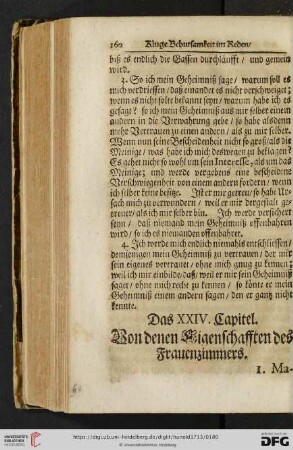 160 Kluge Behutsamkeit im Reden/
biß es endlich die Gassen durchläufft / und gemein
wird.
3. So ich mein Geheimniß sage / warum soll es
mich verdriessen / daß einander es nicht verschweiget;
wenn es nicht solte bekannt seyn / warum habe ich es
gesagt? so ich mein Geheimniß aus mir selber einem
andern in die Verwahrung gebe / so habe alsdenn
mehr Vertrauen zu einen andern / als zu mir selber.
Wenn nun seine Bescheidenheit nicht so groß / als die
Meinige / was habe ich mich deswegen zu beklagen?
Es gehet nicht so wohl um sein Interesse, als um das
Meinige; und werde vergebens eine bescheidene
Verschwiegenheit von einem andern fordern / wenn
ich selber keine besitze. Ist er mir getreu / so habe Ur-
sach mich zu verwundern / weil er mir dergestalt ge-
treuer / als ich mir selber bin. Ich werde versichert
seyn / daß niemand mein Geheimniß offenbahren
wird / so ich es niemanden offenbahre.
4. Ich werde mich endlich niemahls entschliessen /
demjenigen mein Geheimniß zu vertrauen / der mir
sein eigenes vertrauet / ohne mich gnug zu kennen;
weil ich mir einbilde / daß / weil er mir sein Geheimniß
saget / ohne mich recht zu kennen / so könte er mein
Geheimniß einem andern sagen / den er gantz nicht
kennte.
Das XXIV. Capitel.
Von denen Eigenschafften des
Frauenzimmers.
1. Ma-
http://digi.ub.uni-heidelberg.de/diglit/hunold1713/0180
UNIVERSITÄTS-
BIBLIOTHEK
HEIDELBERG
DFG